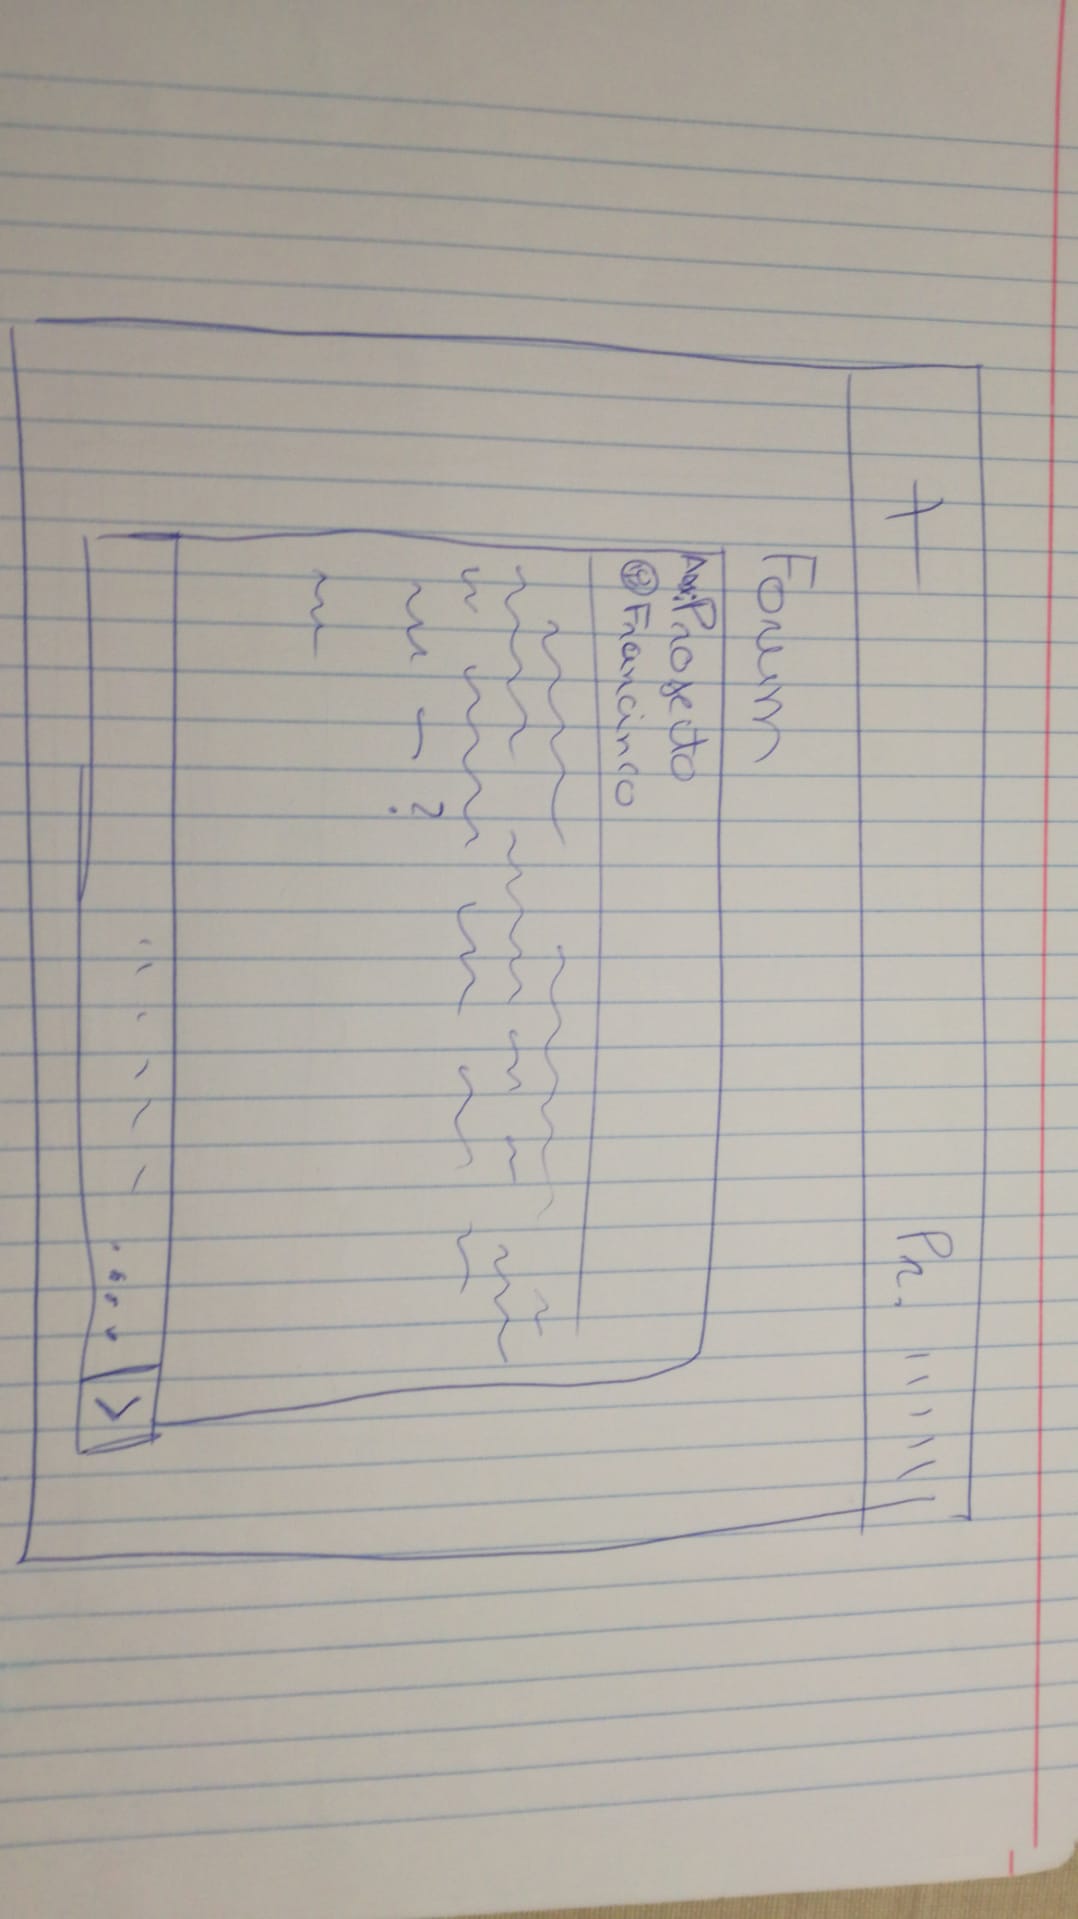 Pr.
Forum
Proyecto
Francinco
?
>